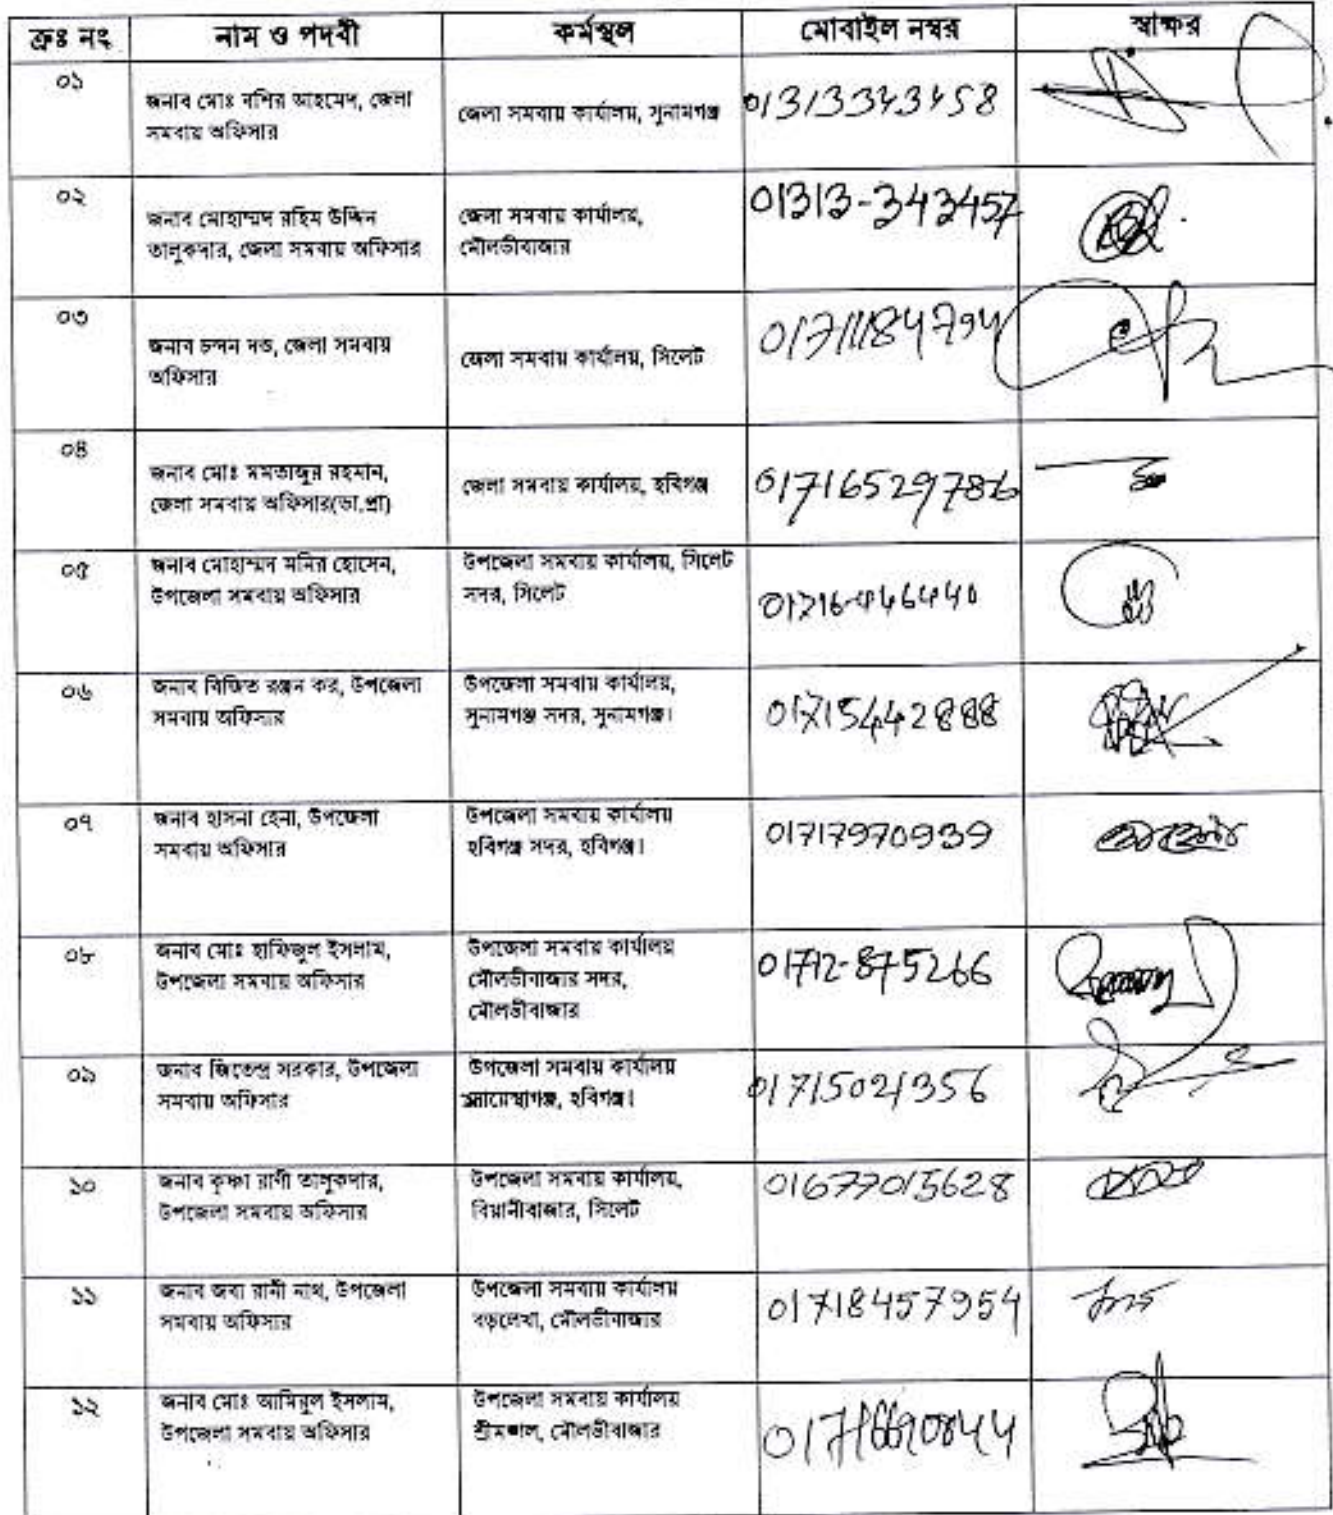 ক্রঃ নং নাম ও পদবী কর্মস্থল মোবাইল নম্বর স্বাক্ষর
০১
জনাব মোঃ বশির আহমেদ, জেলা
সমবায় অফিসার
জেলা সমবায় কার্যালয়, সুনামগঞ্জ
01313343458
০২
জনাব মোহাম্মদ রহিম উদ্দিন
তালুকদার, জেলা সমবায় অফিসার
জেলা সমবায় কার্যালয়,
মৌলভীবাজার
01313-343457
০৩
জনাব চন্দন দত্ত, জেলা সমবায়
অফিসার
জেলা সমবায় কার্যালয়, সিলেট
01711184794
০৪
জনাব মোঃ মমতাজুর রহমান,
জেলা সমবায় অফিসার(ভা.প্রা)
জেলা সমবায় কার্যালয়, হবিগঞ্জ
০৫
জনাব মোহাম্মদ মনির হোসেন,
উপজেলা সমবায় অফিসার
উপজেলা সমবায় কার্যালয়, সিলেট
সদর, সিলেট
01716-446440
০৬
জনাব বিজিত রঞ্জন কর, উপজেলা
সমবায় অফিসার
উপজেলা সমবায় কার্যালয়,
সুনামগঞ্জ সদর, সুনামগঞ্জ।
01715442888
০৭
জনাব হাসনা হেনা, উপজেলা
সমবায় অফিসার
উপজেলা সমবায় কার্যালয়
হবিগঞ্জ সদর, হবিগঞ্জ।
01717970939
০৮
জনাব মোঃ হাফিজুল ইসলাম,
উপজেলা সমবায় অফিসার
উপজেলা সমবায় কার্যালয়
মৌলভীবাজার সদর,
মৌলভীবাজার
01712-875266
০৯
জনাব জিতেন্দ্র সরকার, উপজেলা
সমবায় অফিসার
উপজেলা সমবায় কার্যালয়
হবিগঞ্জ।
01715021356
১০
জনাব কৃষ্ণা রাণী তালুকদার,
উপজেলা সমবায় অফিসার
উপজেলা সমবায় কার্যালয়,
বিয়ানীবাজার, সিলেট
01677015628
১১
জনাব জবা রানী নাথ, উপজেলা
সমবায় অফিসার
উপজেলা সমবায় কার্যালয়
বড়লেখা, মৌলভীবাজার
01718457954
১২
জনাব মোঃ আমিরুল ইসলাম,
উপজেলা সমবায় অফিসার
উপজেলা সমবায় কার্যালয়
শ্রীমঙ্গল, মৌলভীবাজার